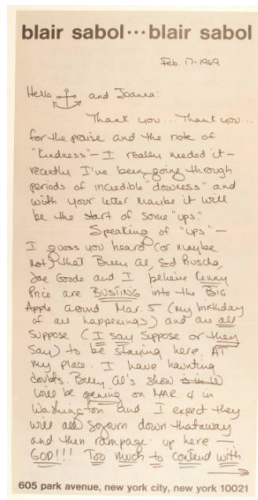 blair sabol•••blair sabol
Feb. 17-1969
Hello and Joanna:
Thank you... Thank you...
for the praise and the note of
"kindness" - I really needed it -
recently I've been going through
periods of incredible "downess" and
with your letter maybe it will
be the start of some "ups."
Speaking of "ups" -
I guess you heard (or maybe
not) that Billy Al, Ed Ruscha,
Joe Goode and I believe Kenny
Price are BUSTING into the BIG
Apple around Mar. 5 (my birthday
of all happenings) and are all
suppose (I say suppose or they
say) to be staying here. At
my place. I have haunting
doubts. Billy Al's show
will be opening on MAR. 4 in
Washington and I expect they
will all sojourn down thataway
and then rampage up here -
GOD!!! Too much to contend with
605 park avenue, new york city, new york 10021